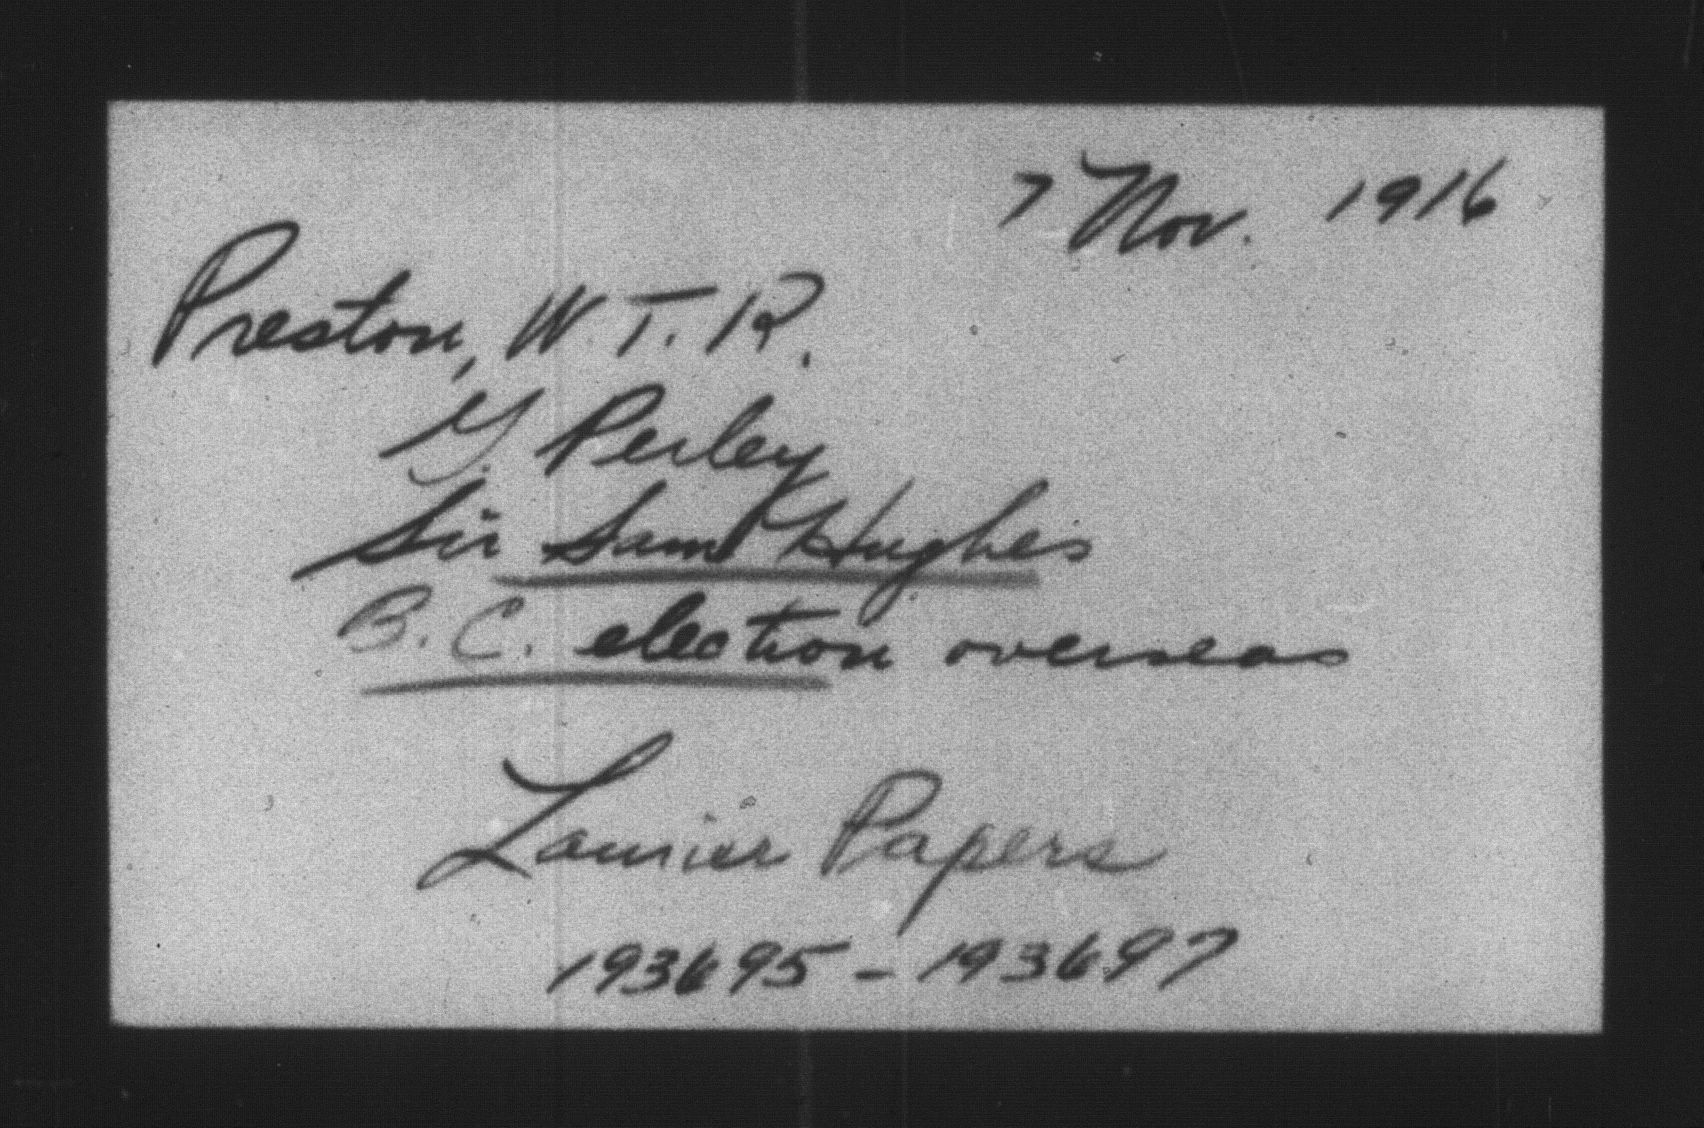 7 Nov. 1916
Preston, W. T. R.
G. Perley
Sir Sam Hughes
B. C. election overseas
Laurier Papers
193695 - 193697